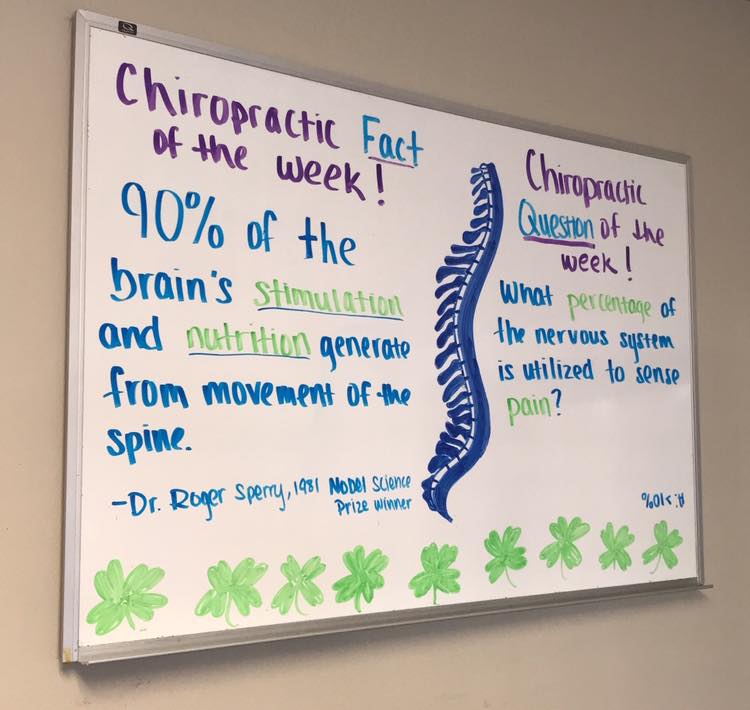 Chiropractic Fact
of the week!
90% of the
brain's stimulation
and nutrition generate
from movement of the
spine.
-Dr. Roger Sperry, 1981 Nobel Science
Prize winner
Chiropractic
Question of the
week!
What percentage of
the nervous system
is utilized to sense
pain?
A: <10%